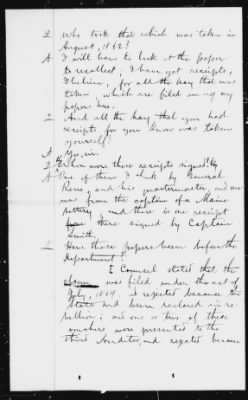 Q Who took that which was taken in
August, 1862?
A I will have to look at the paper
to recollect; I have got receipts,
I believe, for all the hay that was
taken, which are filed among my
papers here.
Q And all the hay that you had
receipts for you know was taken
yourself?
A Yes, sir.
Q Whom were these receipts signed by
A One of them I think by General
Reno, and his quartermaster, and one
was from the captain of a Maine
battery; and there is one receipt
there signed by Captain
Smith.
Q Have those papers been before the
Department?
[Counsel stated that the
claim was filed under the act of
July, 1864. & rejected because the
State had been declared in re-
bellion; and one or two of these
vouchers were presented to the
Third Auditor, and rejected because